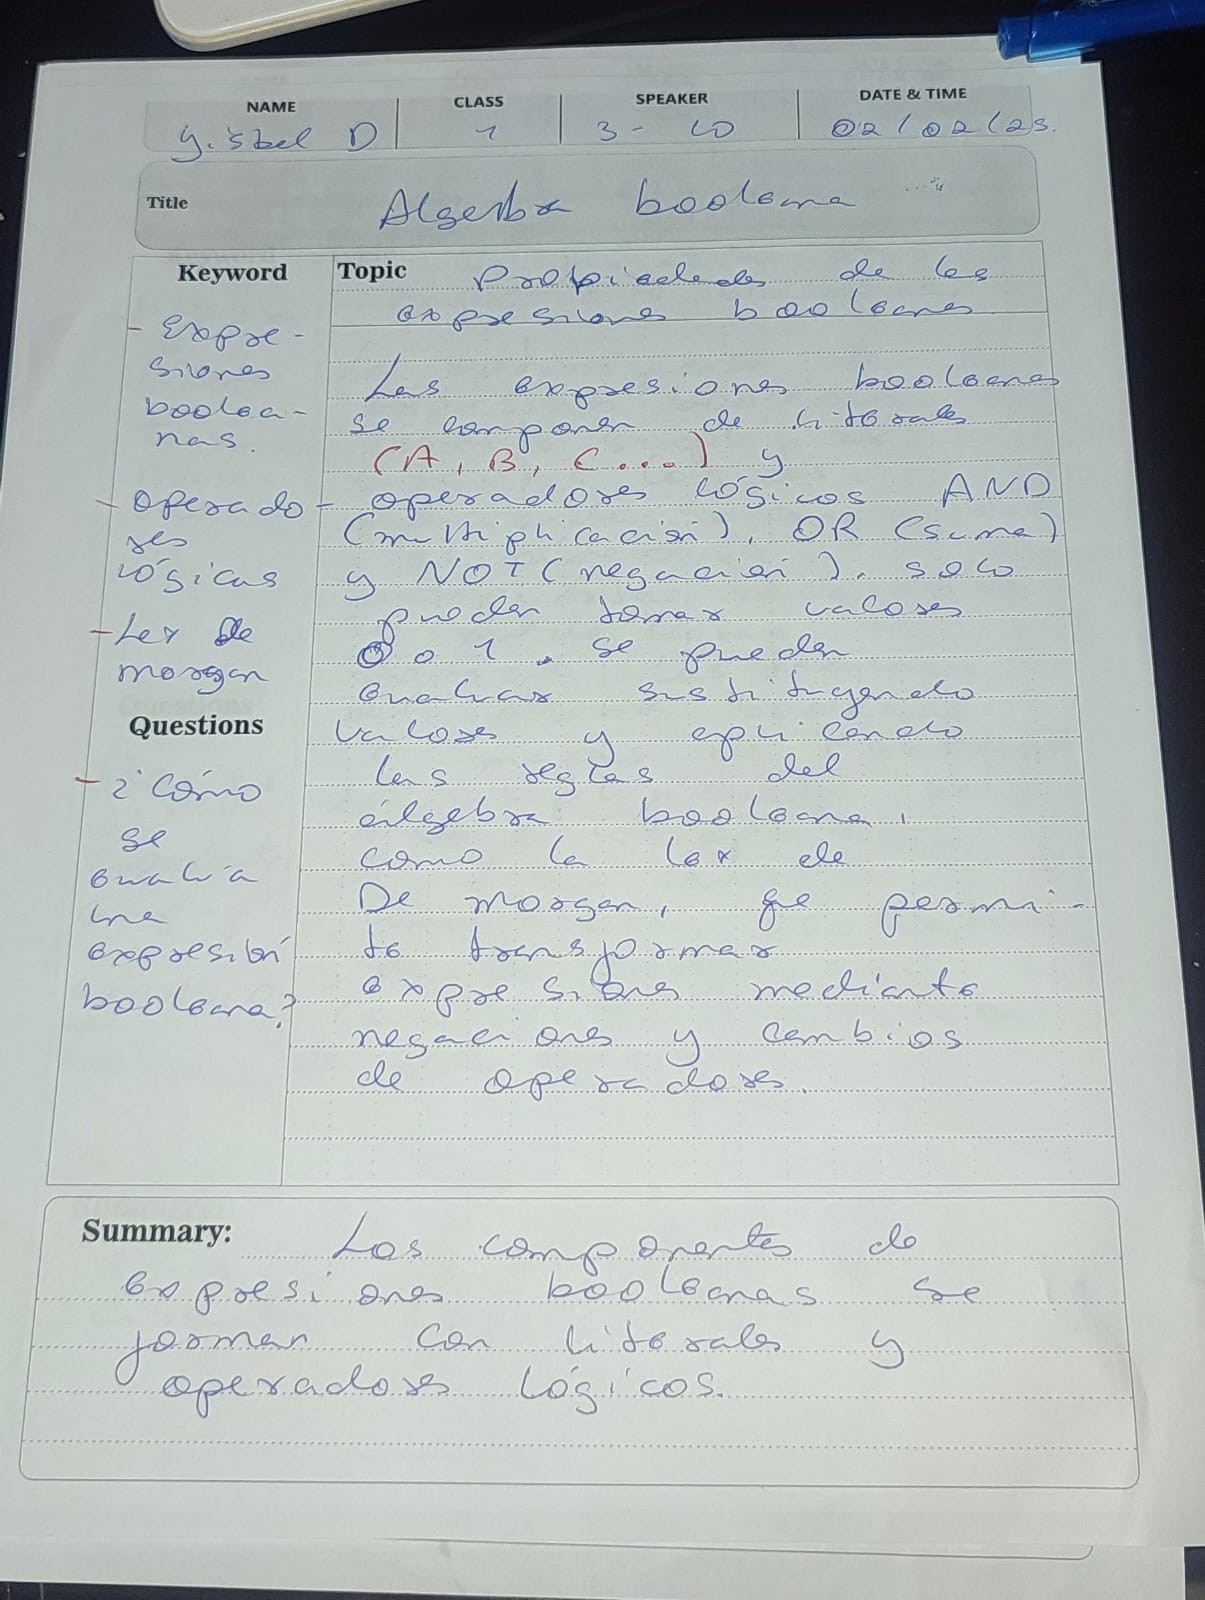 NAME
CLASS
SPEAKER
DATE & TIME
D
1
3 - 10
02/02/25.
Title
Algebra booleana
Keyword
- Expre-
siones
boolea-
nas.
- Operado-
res
lógicas
- Ley De
morgan
Questions
- ¿Cómo
se
evalúa
una
expresión
booleana?
Topic
Propiedades de las
expresiones booleanas
Las expresiones booleanas
se componen de literales
(A, B, C...) y
operadores lógicos AND
(multiplicación), OR (suma)
y NOT (negación). solo
pueden tomar valores
0 o 1. se pueden
evaluar sustituyendo
valores y aplicando
las reglas del
álgebra booleana,
como la ley de
De morgan, que permi-
te transformar
expresiones mediante
negaciones y cambios
de operadores.
Summary:
Los componentes de
expresiones booleanas se
forman con literales y
operadores lógicos.